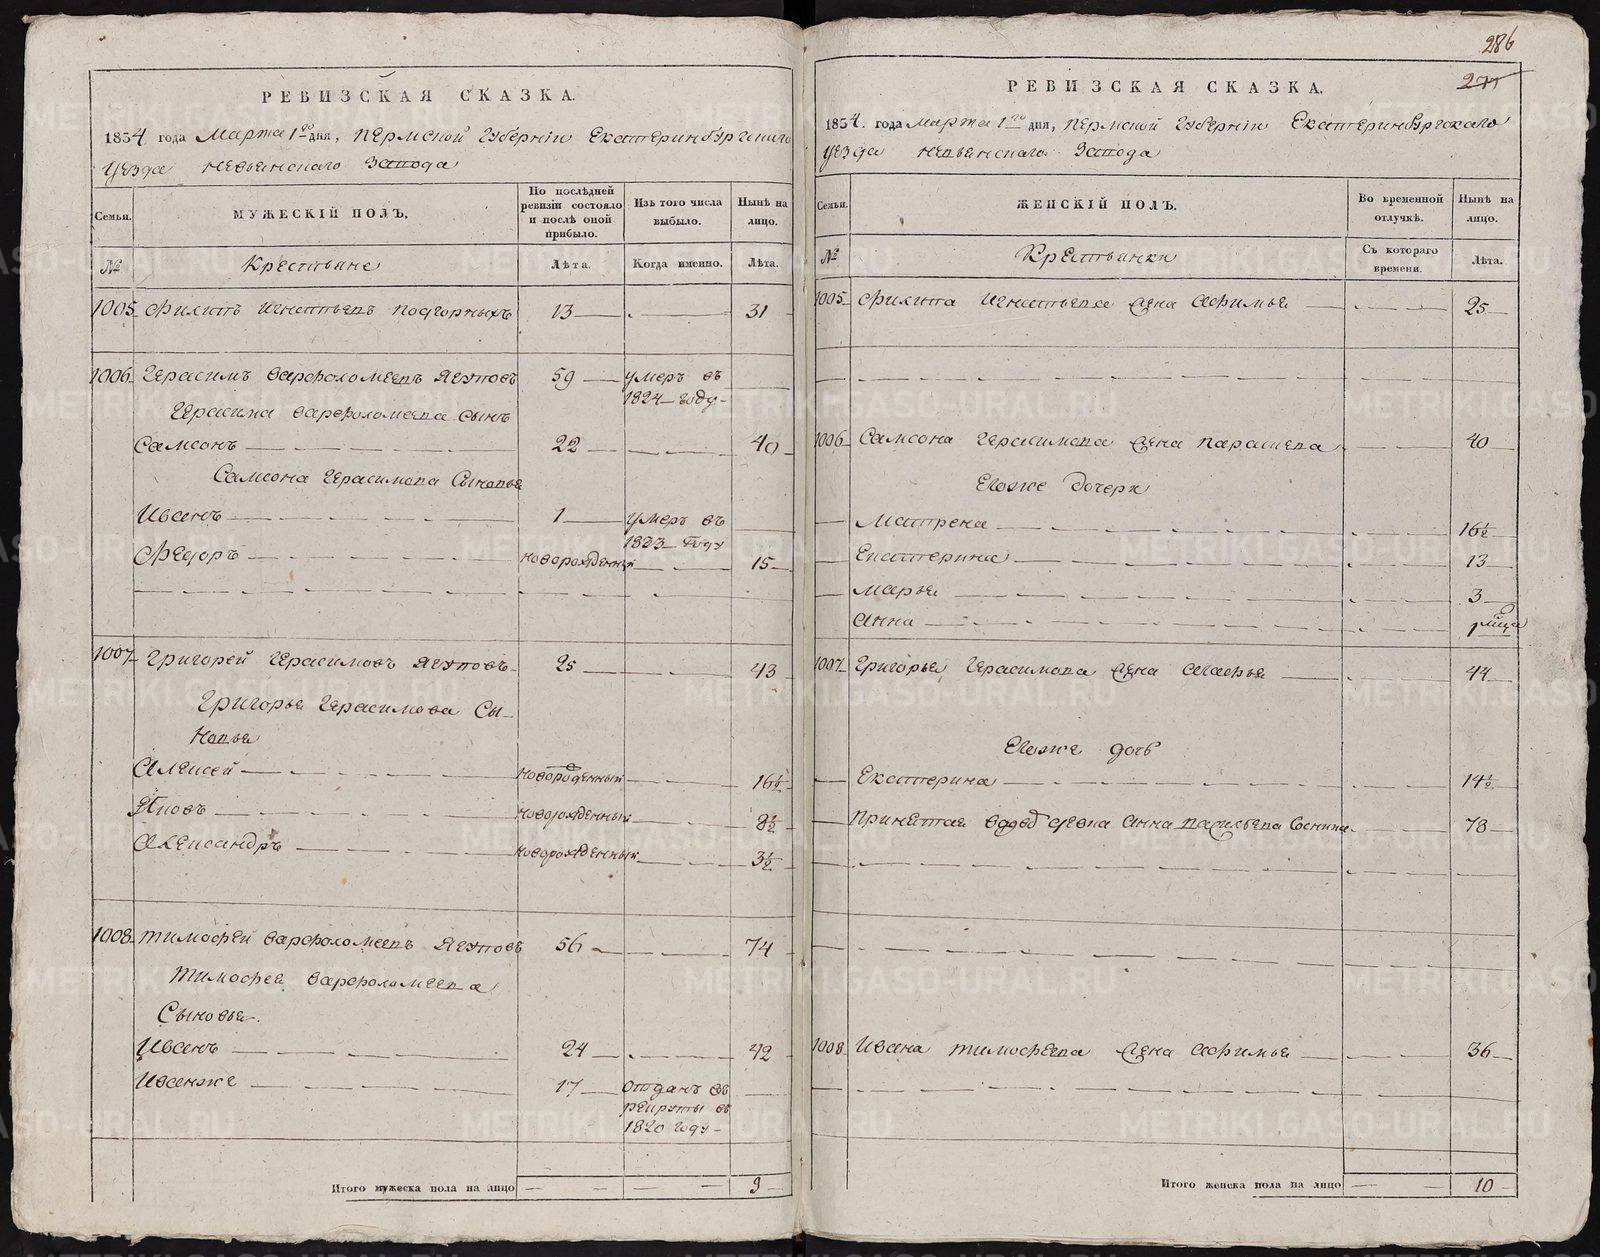 286
277
РЕВИЗСКАЯ СКАЗКА.
1834 года Марта 1го дня, Пермской Губернiи Екатеринбургскаго
уезда Невьянскаго Завода
Семьи.
МУЖЕСКІЙ ПОЛЪ.
По послѣдней ревизіи состояло и послѣ оной прибыло.
Изъ того числа выбыло.
Нынѣ на лицо.
№
Крестьяне
Лѣта.
Когда именно.
Лѣта.
1005 Филипъ Игнатьевъ Подгорныхъ 13 31
1006 Герасимъ Варфоломеевъ Ягуповъ 59 умеръ въ
1824 году
Герасима Варфоломеева сынъ
Самсонъ 22 40
Самсона Герасимова Сыновья
Иванъ 1 умеръ въ
1833 году
Федоръ новорожденный 15
1007 Григорей Герасимовъ Ягуповъ 25 43
Григорья Герасимова Сы-
новья
Алексей новорожденный 16½
Яковъ новорожденный 8½
Александръ новорожденный 3½
1008 Тимофей Варфоломеевъ Ягуповъ 56 74
Тимофея Варфоломеева
Сыновья.
Иванъ 24 42
Иванже 17 отданъ въ
рекруты въ
1820 году
Итого мужеска пола на лицо 9
РЕВИЗСКАЯ СКАЗКА.
1834. года Марта 1го дня, Пермской Губернiи Екатеринбургскаго
уезда Невьянскаго Завода
Семьи.
ЖЕНСКІЙ ПОЛЪ.
Во временной отлучкѣ.
Нынѣ на лицо.
№
Крестьянки
Съ котораго времени.
Лѣта.
1005 Филипа Игнатьева жена Афимья 25
1006 Самсона Герасимова жена Парасковья 40
Егоже дочери
Матрена 16½
Екатерина 13
Марья 3
Анна 1 месяца
1007 Григорья Герасимова жена Агафья 44
Егоже дочь
Екатерина 14½
Принятая вдова Анна 73
1008 Ивана Тимофеева жена Афимья 36
Итого женска пола на лицо 10